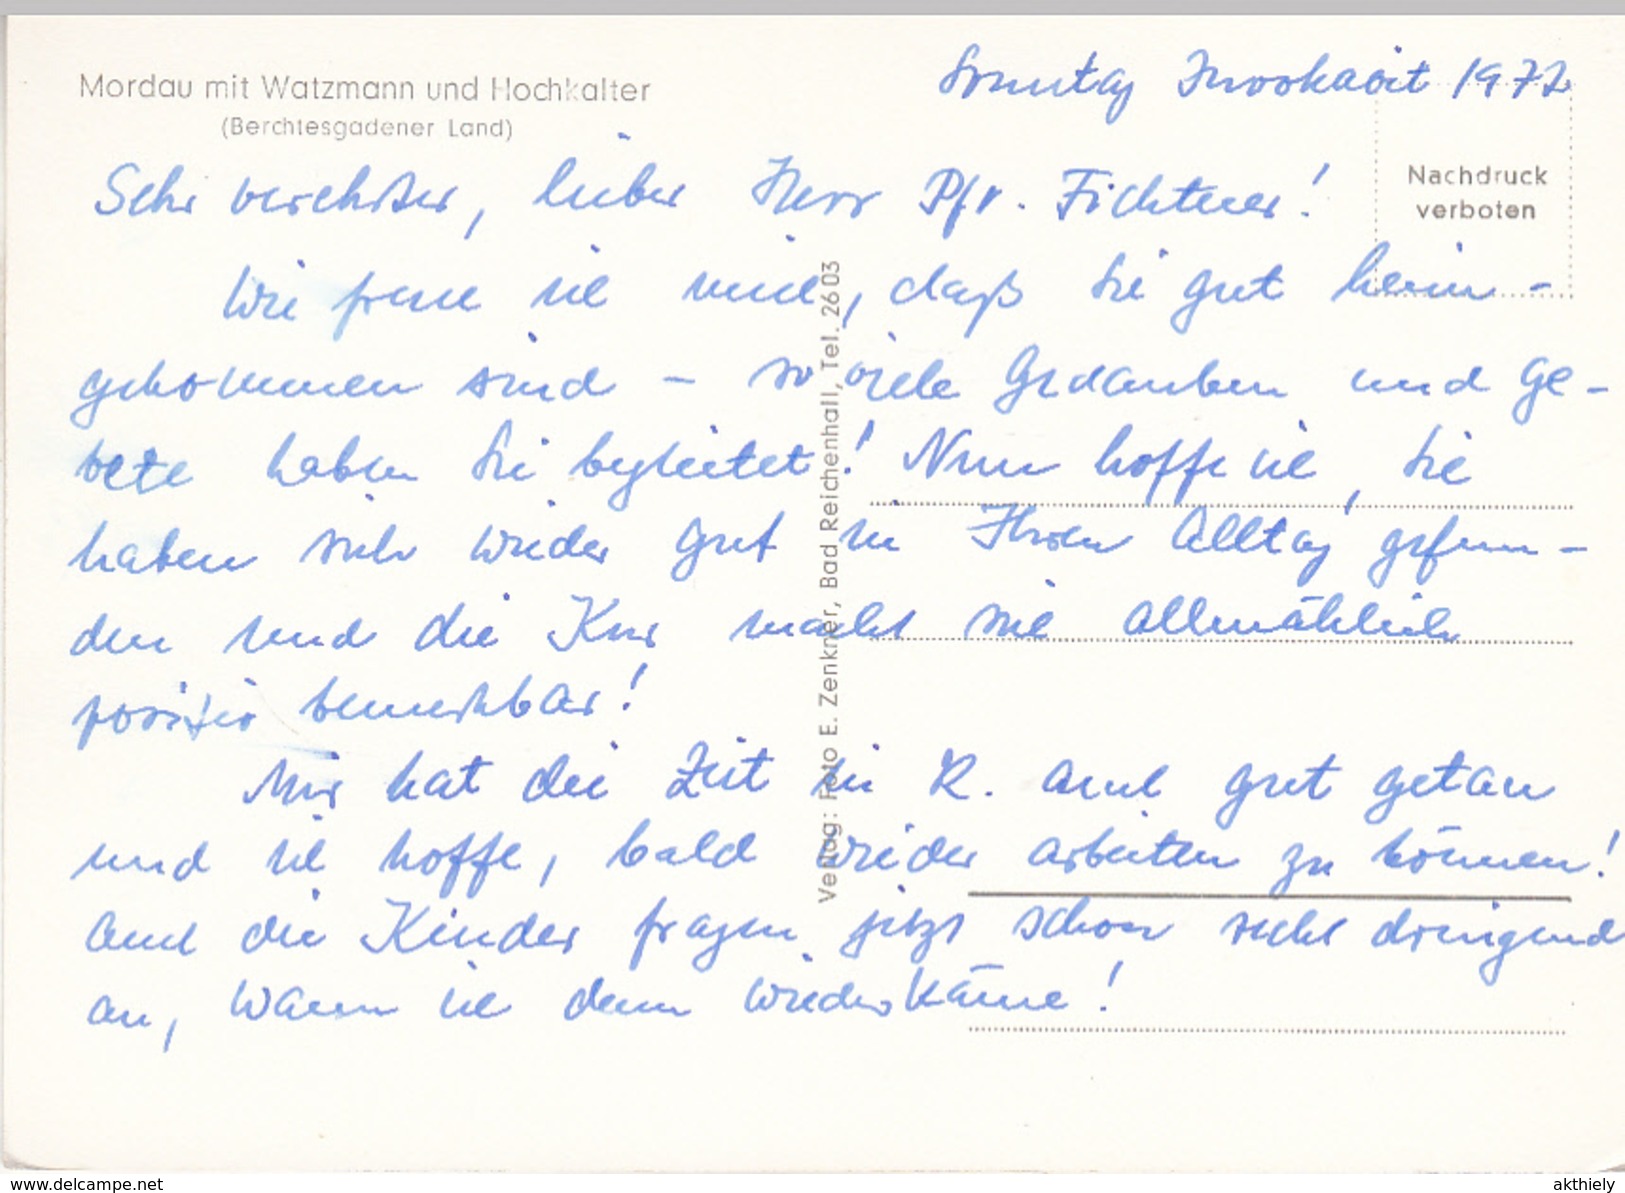 Mordau mit Watzmann und Hochkalter
(Berchtesgadener Land)
Sonntag Invokavit 1972
Nachdruck
verboten
Sehr verehrter, lieber Herr Pfr. Fichtner!
Wie freue ich mich, daß Sie gut heim-
gekommen sind - so viele Gedanken und Ge-
bete haben Sie begleitet! Nun hoffe ich, Sie
haben sich wieder gut in Ihren Alltag gefun-
den und die Kur macht sich allmählich
positiv bemerkbar!
Mir hat die Zeit in R. auch gut getan
und ich hoffe, bald wieder arbeiten zu können!
Auch die Kinder fragen jetzt schon recht dringend
an, wann ich denn wiederkäme!
Verlag: Foto E. Zenkner, Bad Reichenhall, Tel. 2603
www.delcampe.net
akthiely